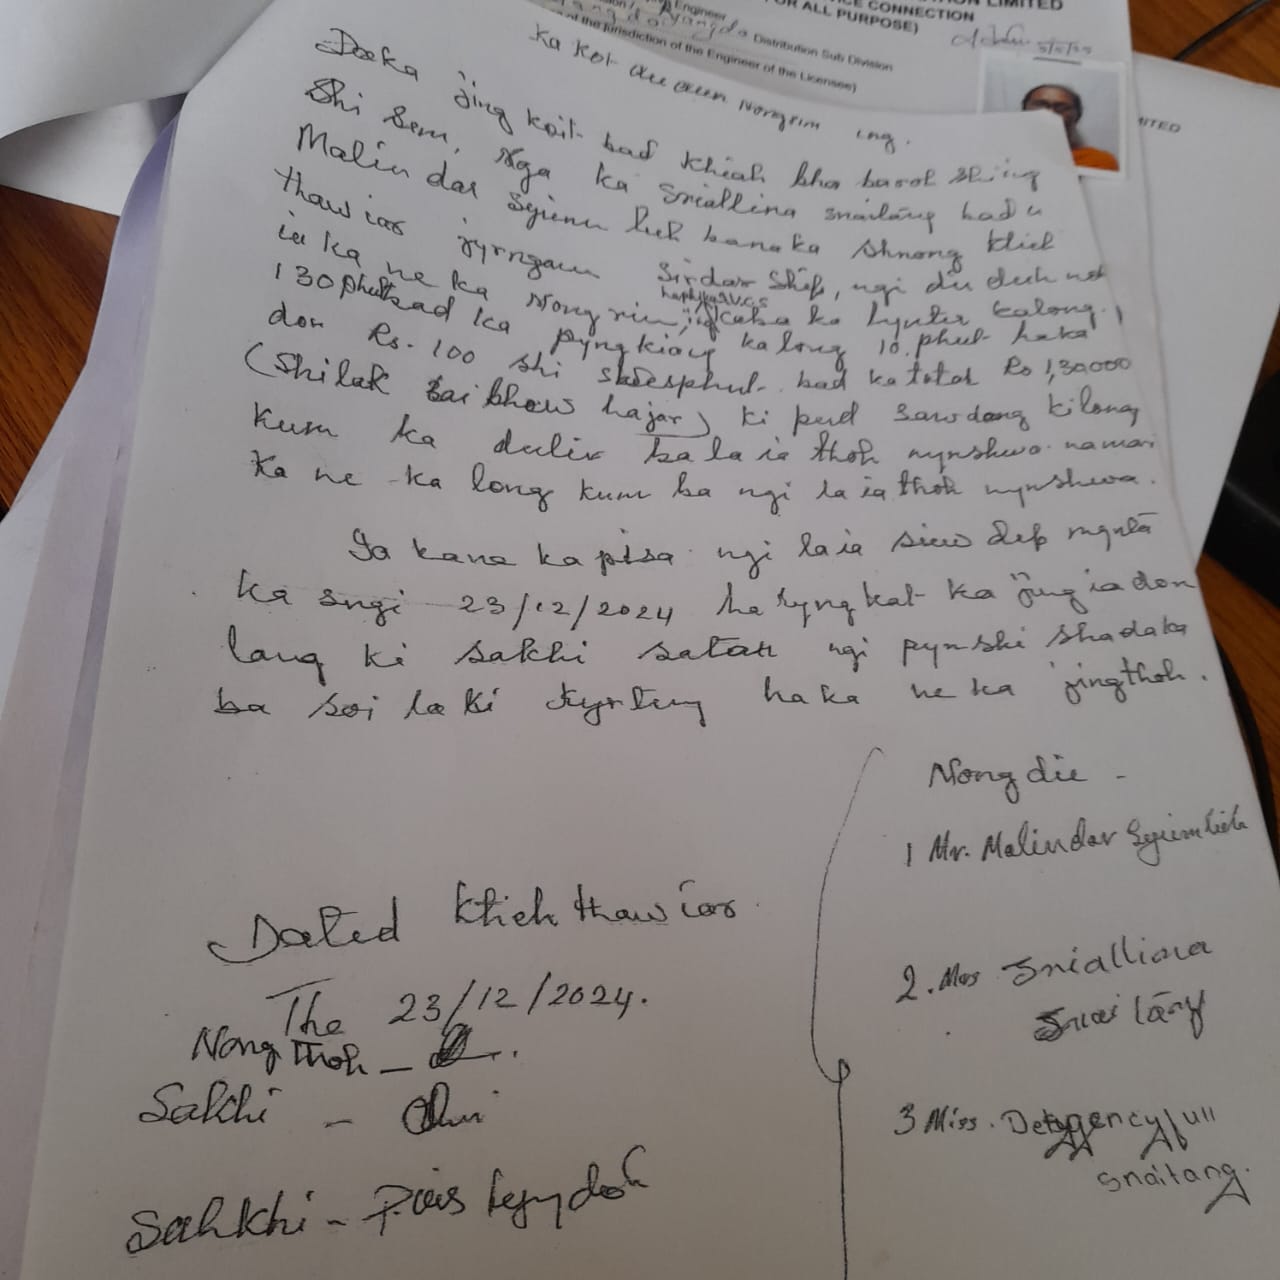 LIMITED
CE CONNECTION
FOR ALL PURPOSE)
Engineer
Distribution Sub Division
of the jurisdiction of the Engineer of the Licensee)
5/5/25
MITED
Ka Kot Nongrim ing.
Da ka jing koit bad khiah bha baroh shi ing
Shi sem, Nga ka Sniallina Snaitang badu
Malindar Syiemlieh banaka Shnong Khlieh
thaw iar jyrngam Sirdar Ship, ngi die duh noh
ia ka ne ka Nongrim, kaba ka lynter kalong
130 phut bad ka pyngkiang ka long 10. phut haka
dor Rs. 100 shi bad ka total Rs 1,30000
(Shi lak Lai bhow hajar) ki pud sawdong kilong
Kum ka dulir ba la ia thoh nynshwa namar
Ka ne ka long kum ba ngi la ia thoh nynshwa.
Ia kane ka pisa ngi la ia siew dep mynta
ka sngi 23/12/2024 ha syngkat ka jing ia don
lang ki sakhi satah ngi pynshi shadaka
ba soi la ki kyrteng haka ne ka jingthoh.
Nong die -
1 Mr. Malindar Syiemlieh
2. Mrs Sniallina
Snaitang
3 Miss.
Snaitang.
Dated Khlieh thaw iar
The 23/12/2024.
Nong Thoh -
Sakhi -
Sahkhi -